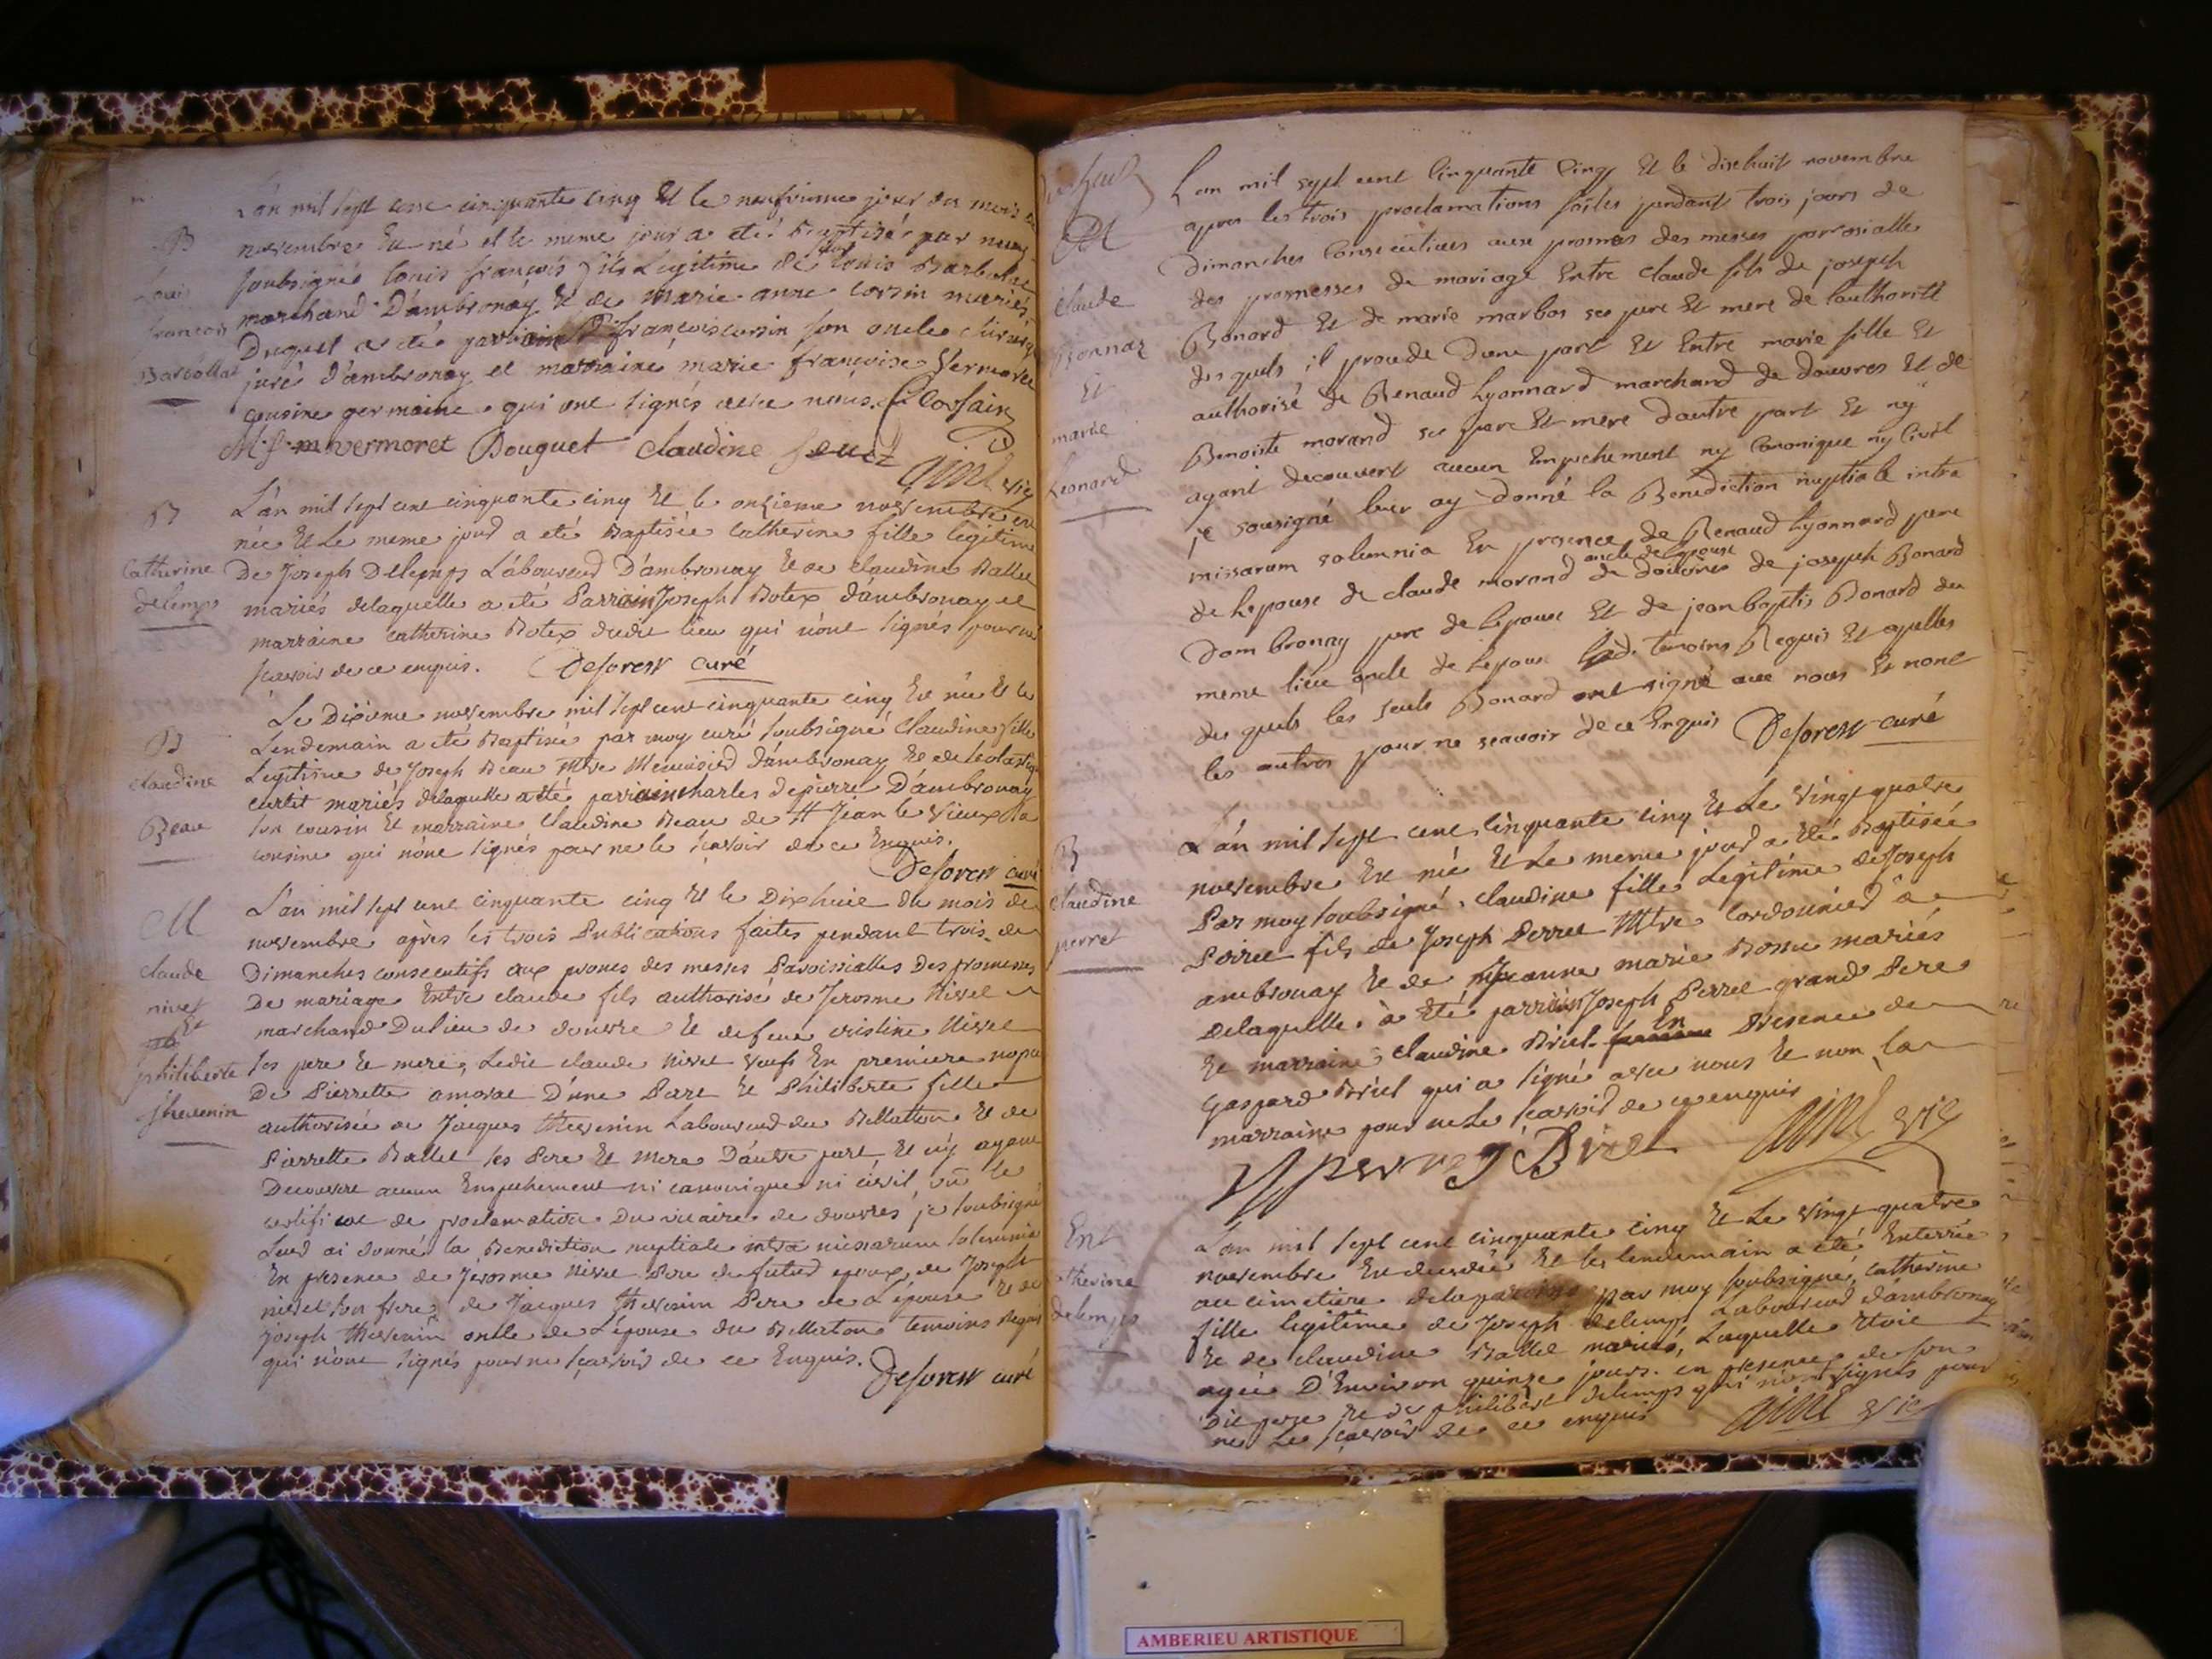 B
Louis
francois
Barbollat
L'an mil sept cent cinquante cinq Et le neufvieme jour du mois de
novembre Est né et le meme jour a eté Baptisé par nous
soubsigné louis francois fils Legitime de louis
marchand D'ambronay Et de Marie anne corsin mariés,
Duquel a eté parrain francois corsin son oncle
juré d'ambronay et marraine marie francoise Vermoret
cousine germaine qui ont signés avec nous. Corsain
M f m vermoret Bouguet claudine
aimé vic
B
Catherine
delemps
L'an mil sept cent cinquante cinq Et le onzieme novembre est
née Et Le meme jour a eté Baptisée catherine fille legitime
De Joseph Delemps Laboureur D'ambronay Et de claudine Ballet
mariés delaquelle a eté Parrain Joseph Botex d'ambronay et
marraine catherine Botex dudit lieu qui n'ont signés pour ne
scavoir de ce enquis. Deforest curé
B
claudine
Beau
Le Dixieme novembre mil sept cent cinquante cinq Est née Et le
Lendemain a eté Baptisée par moy curé soubsigné Claudine fille
Legitime de Joseph Beau Mtre Menuisier d'ambronay Et de
curtit mariés delaquelle a eté parrain charles depierre D'ambronay
son cousin Et marraine Claudine Beau de St Jean le Vieux sa
cousine qui n'ont signés pour ne le scavoir de ce Enquis.
Deforest curé
M
claude
nivet
Et
philiberte
thevenin
L'an mil sept cent cinquante cinq Et le Dixhuit du mois de
novembre après les trois Publications faites pendant trois de
Dimanches consecutifs aux prones des messes Paroissialles Des promesses
De mariage Entre claude fils authorisé de Jerosme Nivet
marchand Du lieu de douvre Et defeue cristine Nivet
ses pere Et mere, Ledit claude Nivet veuf En premiere nopce
De Pierrette amoral D'une Part Et Philiberte fille
authorisée de Jacques thevenin Laboureur du Bellatton Et de
Pierrette Ballet ses Pere Et Mere D'autre part Et n'y ayant
Decouvert aucun Empechement ni canonique ni civil, vû le
certificat de proclamation Du vicaire de douvres, je soubsigné
Leur ai donné la Benediction nuptiale intra missarum solemnia
En presence de Jerosme Nivet Pere du futur epoux, de Joseph
nivet son frere, de Jacques thevenin Pere de L'épouse Et de
Joseph thevenin oncle de L'épouse du Bellaton temoins Requis
qui n'ont signés pour ne scavoir de ce Enquis.
Deforest curé
M
claude
Bonnaz
Et
marie
Leonard
L'an mil sept cent Cinquante Cinq Et le dixhuit novembre
apres les trois proclamations faites pendant trois jours de
Dimanches Consecutives aux prosnes des messes parrosialles
des promesses de mariage Entre Claude fils de joseph
Bonard Et de marie marbos ses pere Et mere de lauthorité
des quels il procede Dune part Et Entre marie fille Et
authorisé de Renaud Lyonnard marchand de douvres Et de
Benoiste morand ses pere Et mere dautre part Et ny
ayant decouvert aucun Empechement ny Canonique ny Civil
je sousigné leur ay donné la Benediction nuptiale intra
missarum solemnia En presence de Renaud Lyonnard pere
de lepouse de claude morand oncle de lepouse de douvres de joseph Bonard
Dambronay pere de lepoux Et de jean baptis Bonard du
meme lieu oncle de lepoux temoins Requis Et apellés
des quels les seuls Bonard ont signé avec nous Et nont
les autres pour ne scavoir de ce Enquis Deforest curé
B
claudine
perret
L'an mil sept cent cinquante cinq Et Le vingt quatre
novembre Est née Et Le meme jour a été Baptisée
Par moy soubsigné, claudine fille Legitime de Joseph
Perret fils de Joseph Perret Mtre Cordonnier à
ambronay Et de Jeanne marie Bossu mariés
Delaquelle à été parrain Joseph Perret grand Pere
Et marraine claudine Briel En Presence de
Gaspard Briel qui a signé avec nous Et non la
marraine pour ne Le scavoir de ce enquis
J perret g Briel aimé vic
Ent
catherine
delemps
L'an mil sept cent cinquante cinq Et Le vingt quatre
novembre Est decedée Et le lendemain a eté Enterrée
au cimetiere delaparoisse par moy soubsigné, catherine
fille legitime de Joseph delemps Laboureur d'ambronay
Et de claudine Ballet mariés, Laquelle étoit
agée D'Environ quinze jours. en presence de son
Dit pere Et de philibert delemps qui n'ont signés pour
ne Le scavoir de ce enquis aimé vic
AMBERIEU ARTISTIQUE